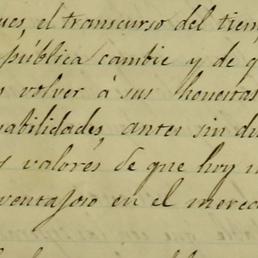 ues, el transcurso del tiem
pública cambie y de q
s volver á sus honestas
abilidades, antes sin du
y valores de que hoy
ventajoso en el merca